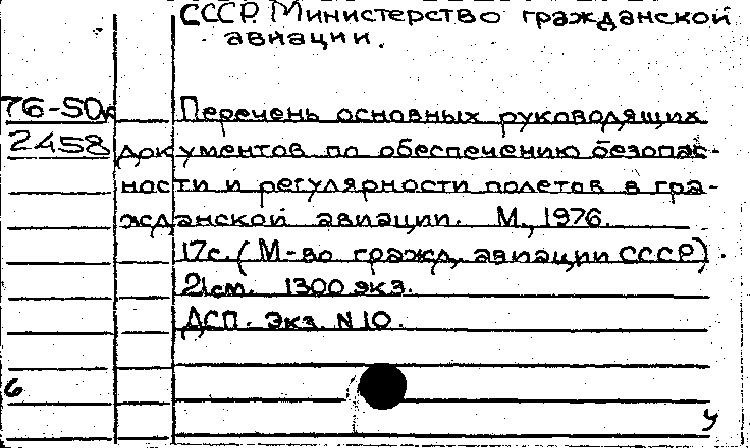 СССР. Министерство гражданской
авиации.
76-50к
Перечень основных руководящих
2458
документов по обеспечению безопас-
ности и регулярности полетов в гра-
жданской авиации. М., 1976.
17с. (М-во гражд. авиации СССР).
21см. 1300 экз.
ДСП. Экз. N 10.
6
У